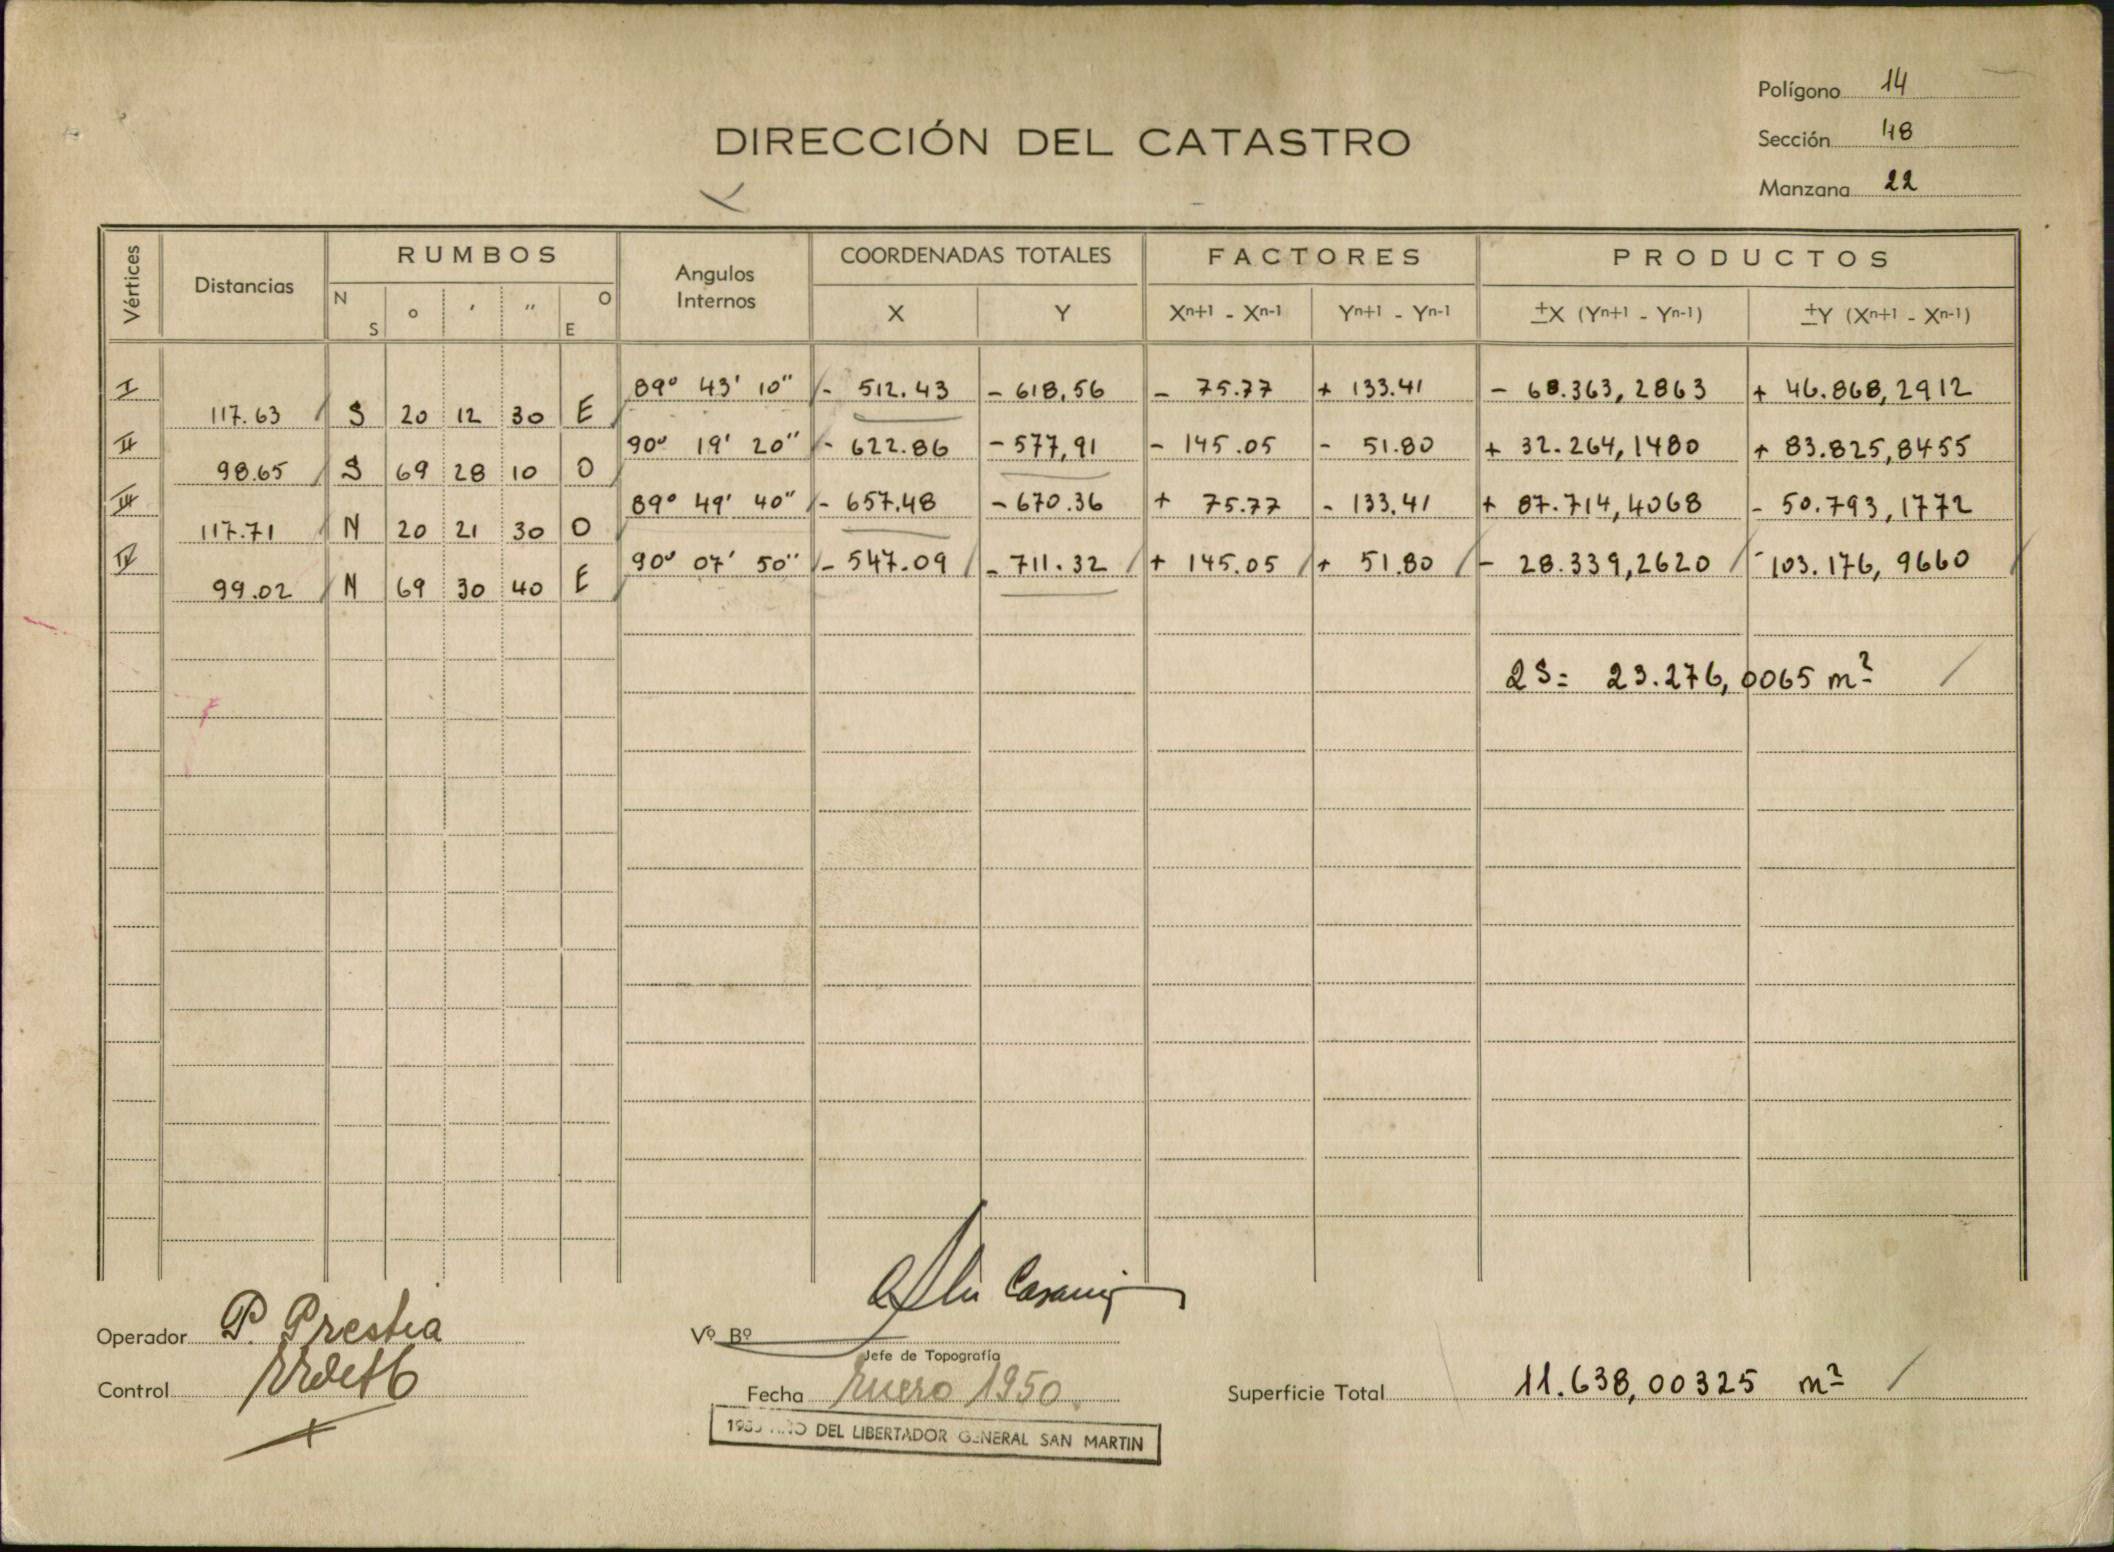 Polígono 14
DIRECCIÓN DEL CATASTRO
Sección 48
Manzana 22
Vértices Distancias RUMBOS Angulos Internos COORDENADAS TOTALES FACTORES PRODUCTOS
N S o ′ ″ O E X Y Xn+1 - Xn-1 Yn+1 - Yn-1 ±X (Yn+1 - Yn-1) ±Y (Xn+1 - Xn-1)
I 89º 43' 10" - 512.43 - 618,56 - 75.77 + 133.41 - 68.363,2863 + 46.868,2912
117.63 S 20 12 30 E
II 90º 19' 20" - 622.86 - 577,91 - 145.05 - 51.80 + 32.264,1480 + 83.825,8455
98.65 S 69 28 10 O
III 89º 49' 40" - 657.48 - 670.36 + 75.77 - 133.41 + 87.714,4068 - 50.793,1772
117.71 N 20 21 30 O
IV 90º 07' 50" - 547.09 - 711.32 + 145.05 + 51.80 - 28.339,2620 - 103.176,9660
99.02 N 69 30 40 E
2S = 23.276,0065 m²
Operador P. Prestia
Vº Bº
Jefe de Topografía
Control
Fecha Enero 1950.
Superficie Total 11.638,00325 m²
DEL LIBERTADOR GENERAL SAN MARTIN